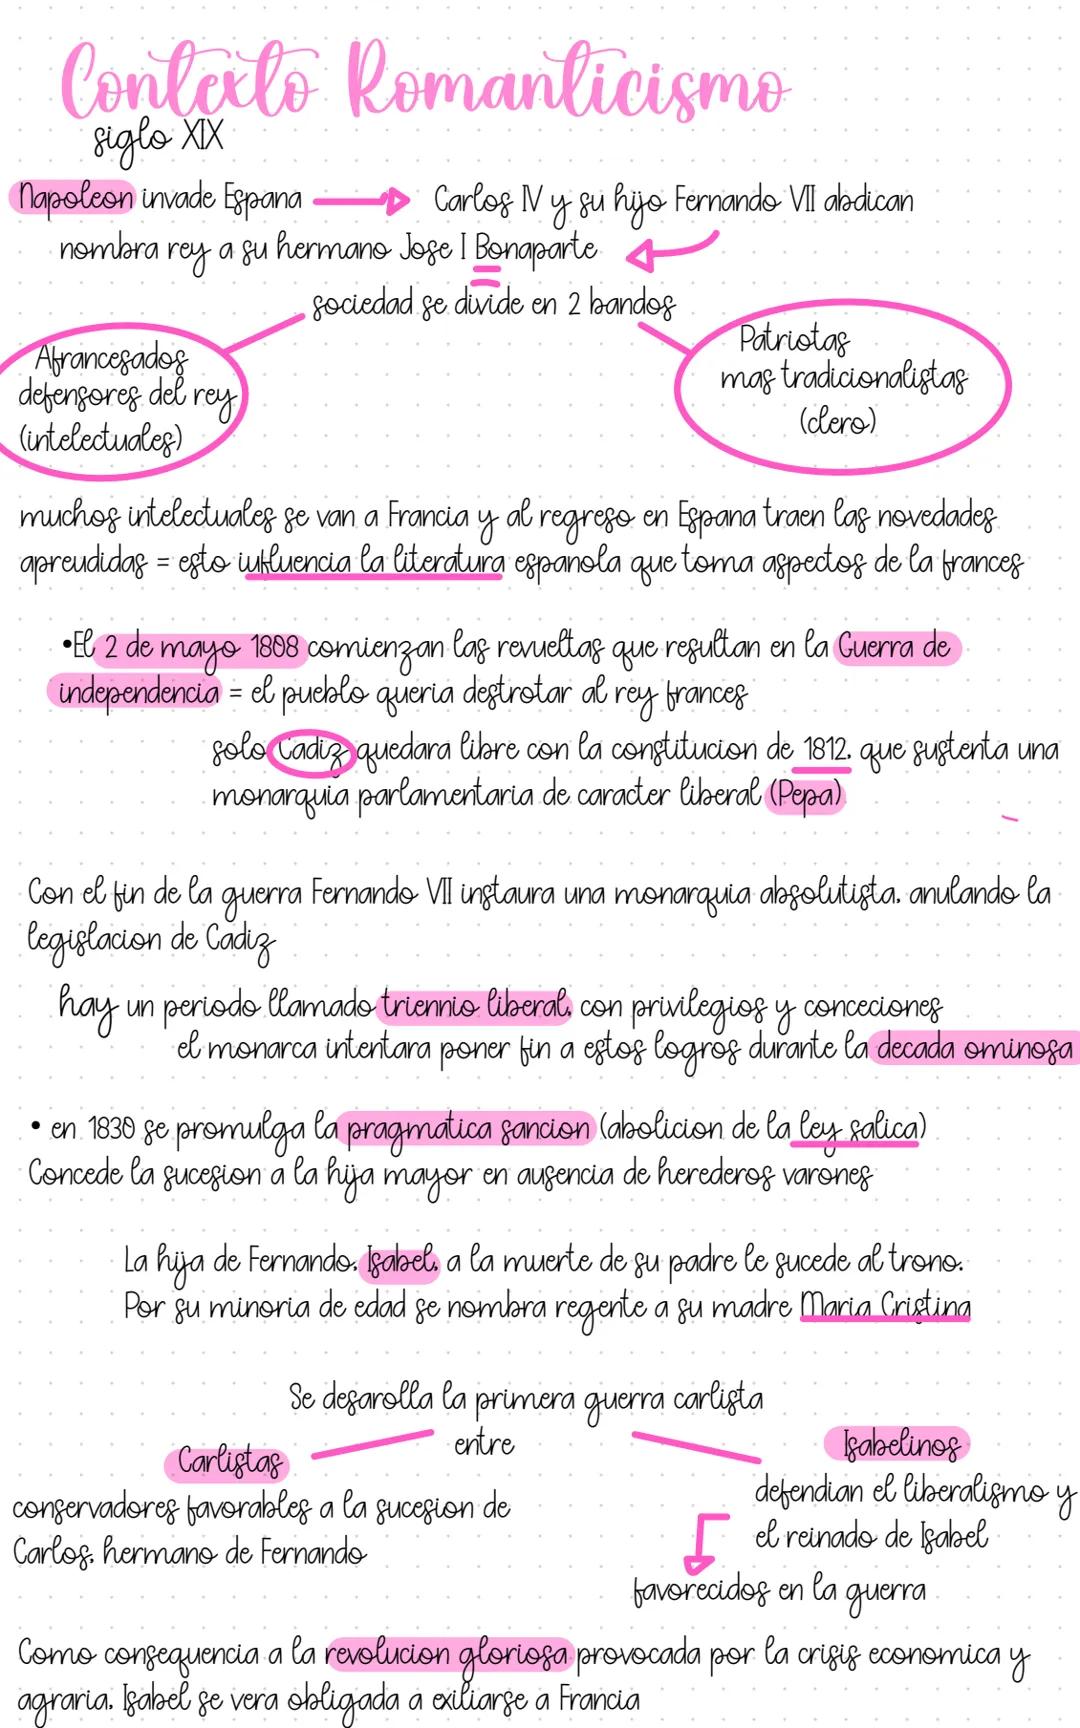 Contexto Romanticismo
siglo XIX
Napoleon invade Espana → Carlos IV y su hijo Fernando VII abdican
nombra rey a su hermano Jose I Bonaparte
sociedad se divide en 2 bandos
Afrancesados
defensores del rey
(intelectuales)
Patriotas
mas tradicionalistas
(clero)
muchos intelectuales se van a Francia y al regreso en Espana traen las novedades
apreudidas = esto iufluencia la literatura espanola que toma aspectos de la frances
•El 2 de mayo 1808 comienzan las revueltas que resultan en la Guerra de
independencia = el pueblo queria destrotar al rey frances
solo Cadiz quedara libre con la constitucion de 1812, que sustenta una
monarquia parlamentaria de caracter liberal (Pepa)
Con el fin de la guerra Fernando VII instaura una monarquia absolutista, anulando la
legislacion de Cadiz
hay un periodo llamado triennio liberal, con privilegios y conceciones
el monarca intentara poner fin a estos logros durante la decada ominosa
• en 1830 se promulga la pragmatica sancion (abolicion de la ley salica)
Concede la sucesion a la hija mayor en ausencia de herederos varones
La hija de Fernando, Isabel, a la muerte de su padre le sucede al trono.
Por su minoria de edad se nombra regente a su madre Maria Cristina
Se desarolla la primera guerra carlista
entre
Carlistas
conservadores favorables a la sucesion de
Carlos, hermano de Fernando
Isabelinos
defendian el liberalismo y
el reinado de Isabel
favorecidos en la guerra
Como consequencia a la revolucion gloriosa provocada por la crisis economica y
agraria, Isabel se vera obligada a exiliarse a Francia